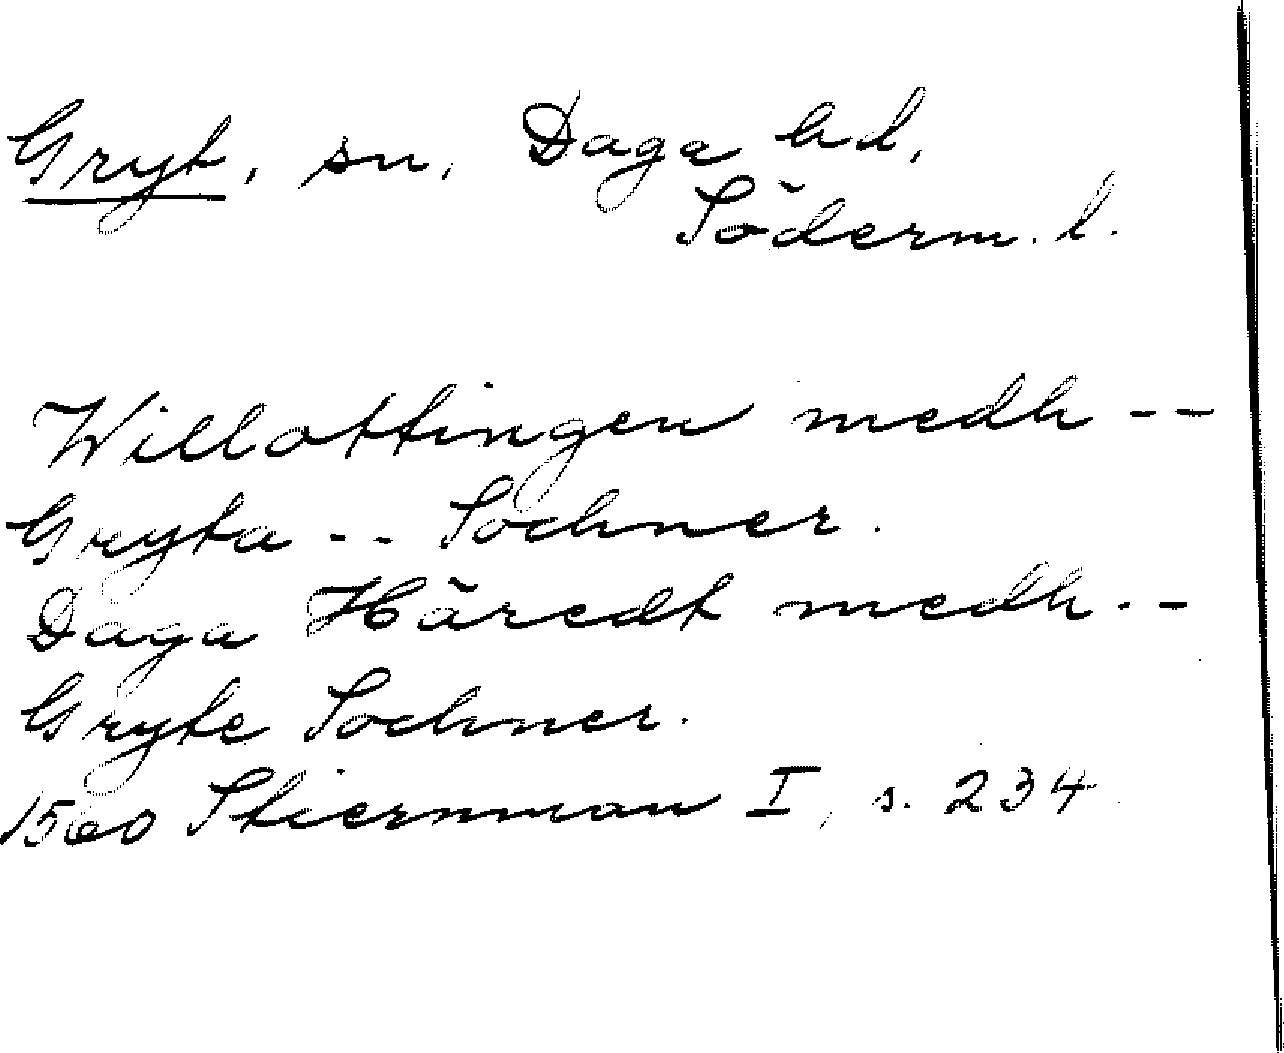 Gryt, sn, Daga hd,
Söderm. l.
Willottingen medh --
Greyta -- Sochner.
Daga Häredt medh --
Gryte Sochner.
1560 Stiernman I, s. 234